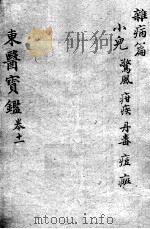 雜病篇
小兒 驚風 疳疾 丹毒 痘
東醫寶鑑 卷十一